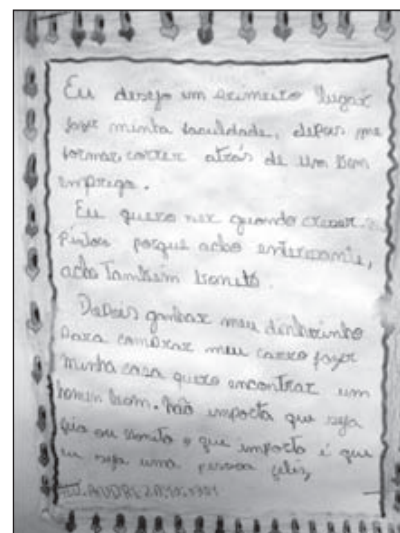 Eu desejo um primeiro lugar
fazer minha faculdade, depois me
formar, correr atrás de um bom
emprego.
Eu quero ser quando crescer
pintora porque acho enteresante,
acho tambem bonito.
Depois ganhar meu dinheirinho
para comprar meu carro fazer
minha casa quero encontrar um
homem bom. Não importa que seja
feio ou bonito o que importa é que
eu seja uma pessoa feliz,